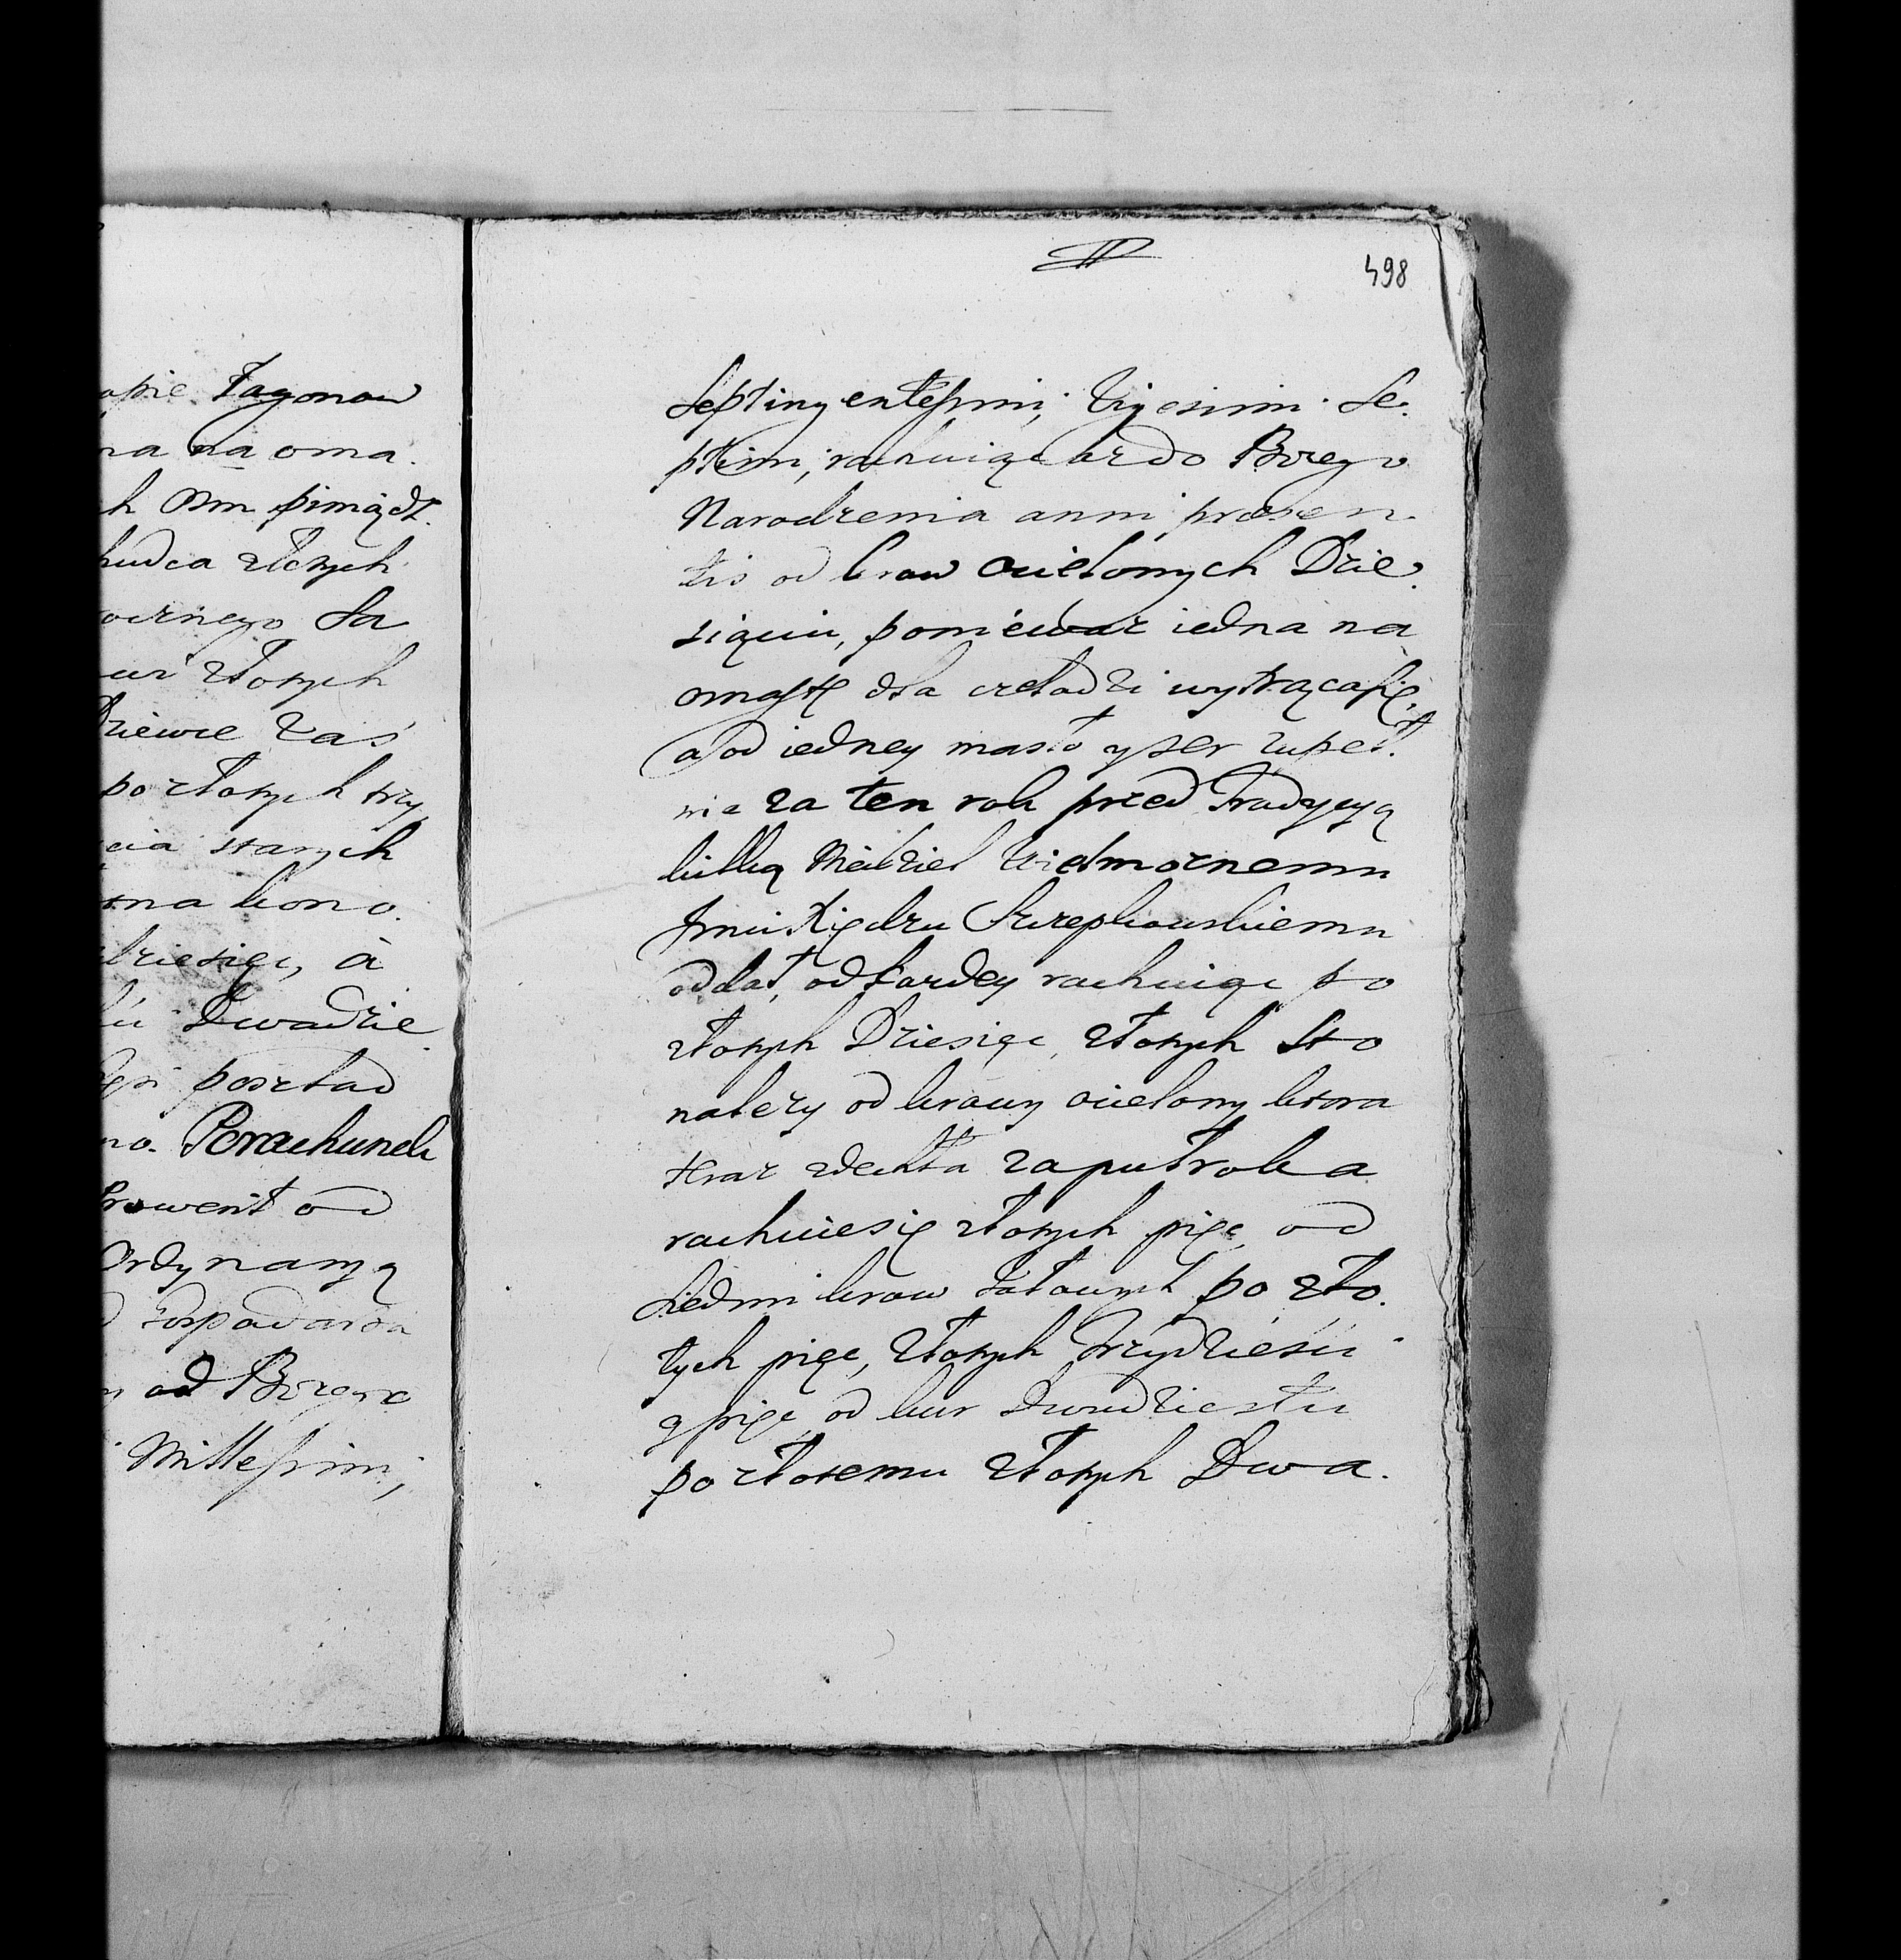 apie Jagonow
na na oma.
h osm pimiądz.
złotych
ocznego Sa
złotych
Dziewce zaś
po złotych trzy
cia starych
tna kono.
dziesięć, à
Dwadzie
poszlad
no. Porachunek
Prowent od
Ordynaryą
Gospodarza
od Bożego
Millessimi,
498
Septingentessimi, Vigesimi Se.
ptimi, rachuiąc asz do Bożego
Narodzenia anni præsen.
tis od krow ocielonych Dzie.
siąciu, poniéwaz iedna na
omastę dla czeladzi wytrącasię,
a od iedney masło y ser zupeł.
nie za ten rok przed Tradycyą
Wielmoznemu
Jmci Xiędzu Szrepkowskiemu
oddał, od kazdey rachuiąc po
złotych Dziesięc, złotych Sto
nalezy od krowy ocielony ktora
teraz zdechła za puł roka
rachuiesię złotych pięc, od
Siedmi krow iałowych po zło.
tych pięc, złotych Trzydzieści
y pięc, od kur Dwudziestu
po złotemu złotych Dwa.